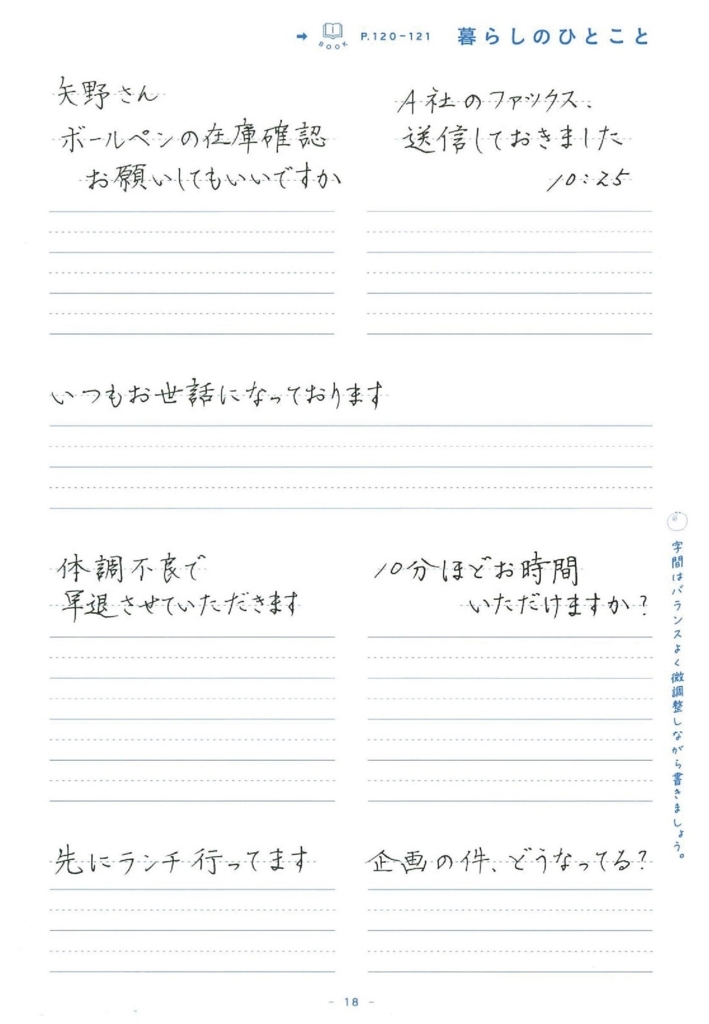 → BOOK P.120-121 暮らしのひとこと
矢野さん
ボールペンの在庫確認
お願いしてもいいですか
A社のファックス、
送信しておきました
10:25
いつもお世話になっております
体調不良で
早退させていただきます
10分ほどお時間
いただけますか?
先にランチ行ってます
企画の件、どうなってる?
字間はバランスよく微調整しながら書きましょう。
- 18 -